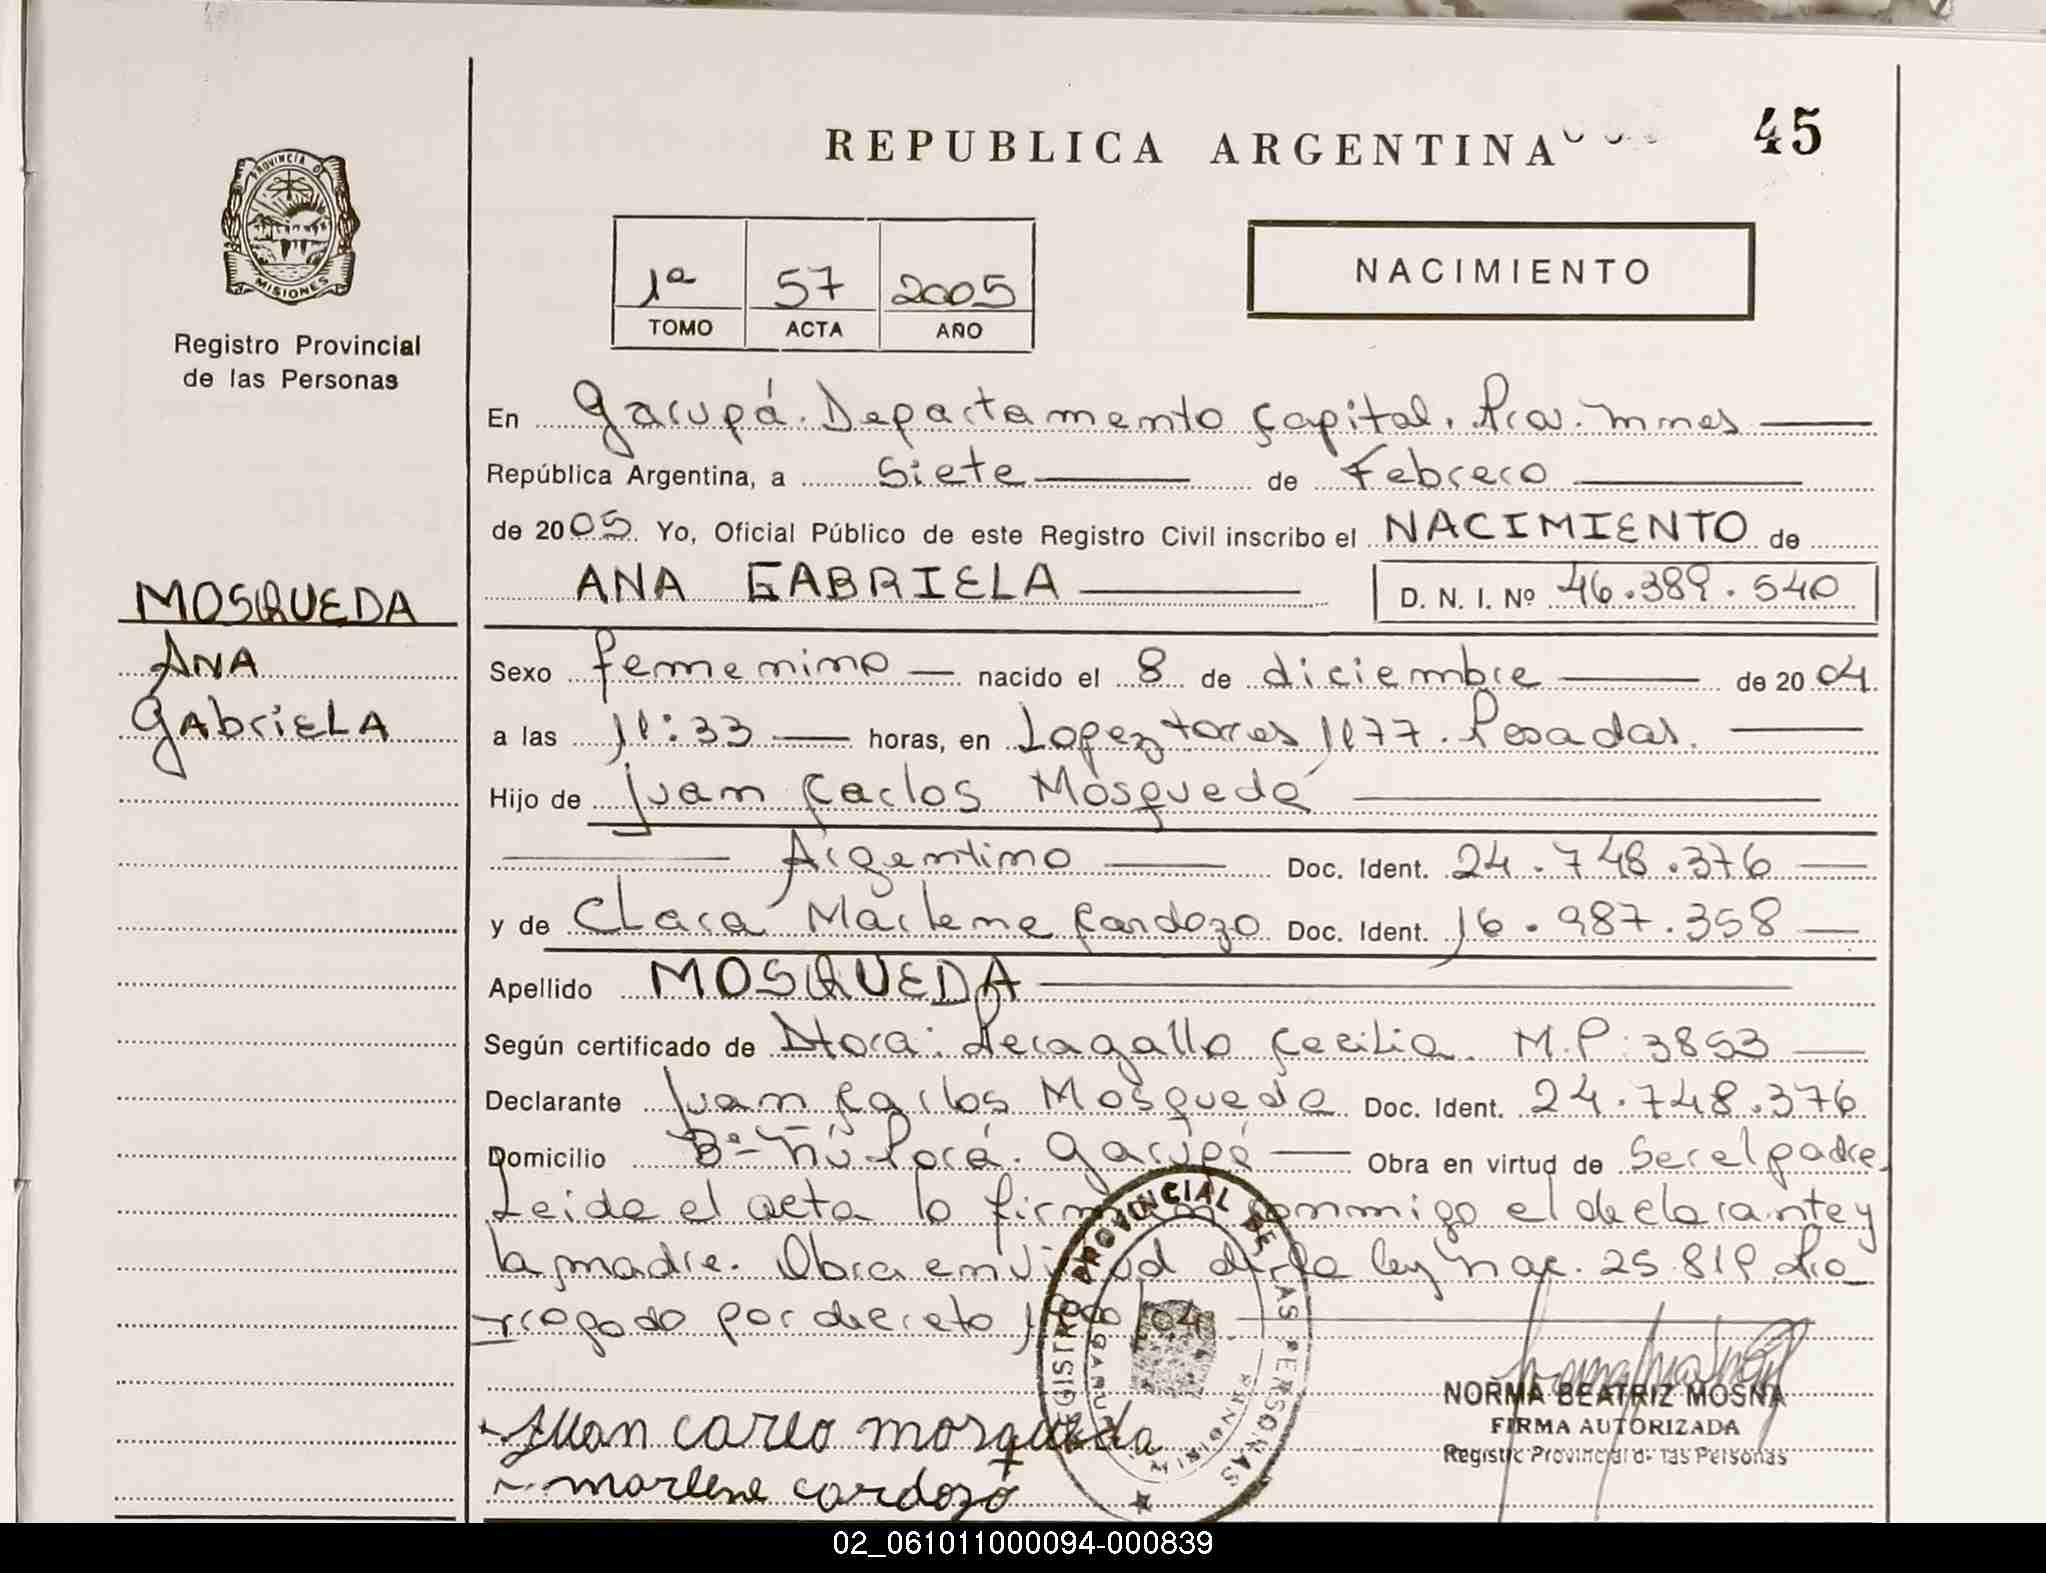 REPUBLICA ARGENTINA
45
PROVINCIA DE
MISIONES
Registro Provincial
de las Personas
1ª 57 2005
TOMO ACTA AÑO
NACIMIENTO
En Garupá. Departamento Capital. Prov. Mnes
República Argentina, a Siete de Febrero
de 2005 Yo, Oficial Público de este Registro Civil inscribo el NACIMIENTO de
ANA GABRIELA D. N. I. Nº 46.389.540
MOSQUEDA
ANA
GAbriELA
Sexo femenino nacido el 8 de diciembre de 2004
a las 11:33 horas, en Lopez torres 1177. Posadas.
Hijo de Juan Carlos Mosqueda
Argentino Doc. Ident. 24.748.376
y de Clara Marlene Cardozo Doc. Ident. 16.987.358
Apellido MOSQUEDA
Según certificado de Dtora. Peragallo Cecilia. M.P: 3853
Declarante Juan Carlos Mosqueda Doc. Ident. 24.748.376
Domicilio Bº Ñu Porá. Garupá Obra en virtud de Ser el padre
Leida el acta lo firman conmigo el declarante y
la madre. Obra en virtud de la ley nac. 25.819 Pro
rrogado por decreto /04
REGISTRO PROVINCIAL DE LAS PERSONAS
GARUPA
MISIONES
Juan carlo mosqueda
marlene cardozo
NORMA BEATRIZ MOSNA
FIRMA AUTORIZADA
Registro Provincial de las Personas
02_061011000094-000839